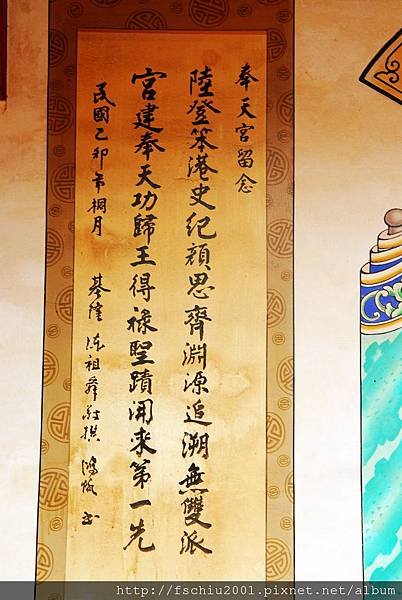 奉天宮留念
陸登笨港史紀顏思齊淵源追溯無雙派
宮建奉天功歸王得祿聖蹟開來第一先
民國乙卯年桐月
基隆 陳祖舜敬撰 鴻 書
http://fschiu2001.pixnet.net/album